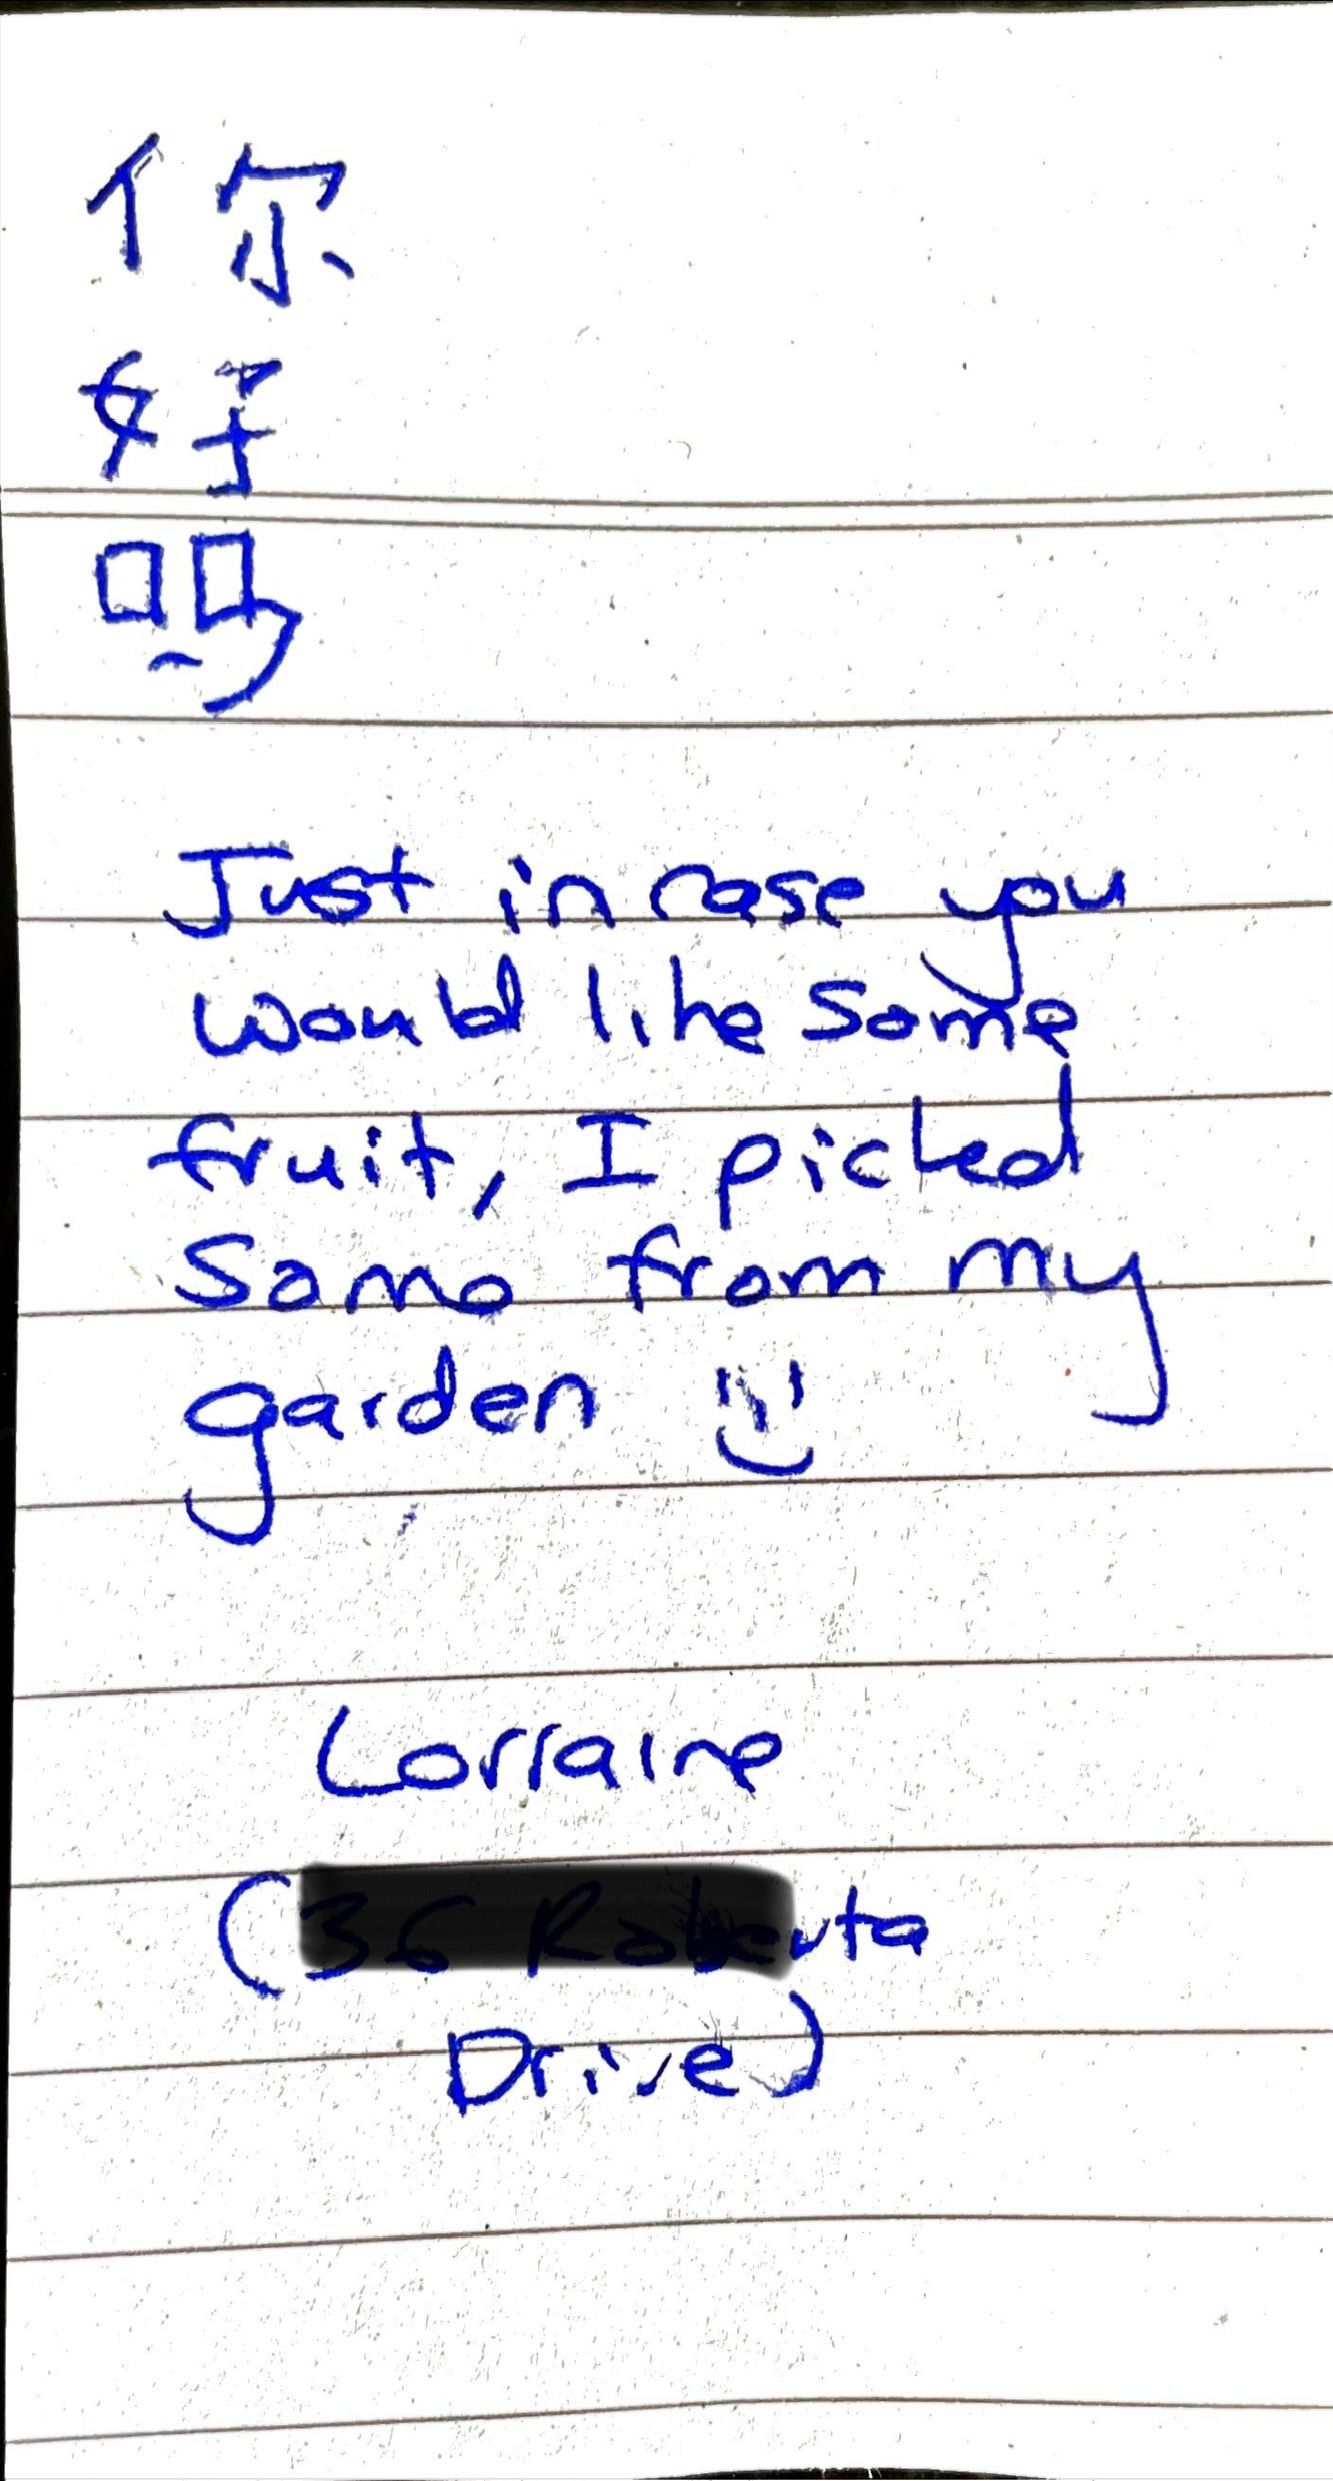 你
好
吗
Just in case you
would like some
fruit, I picked
some from my
garden
Lorraine
(
Drive)